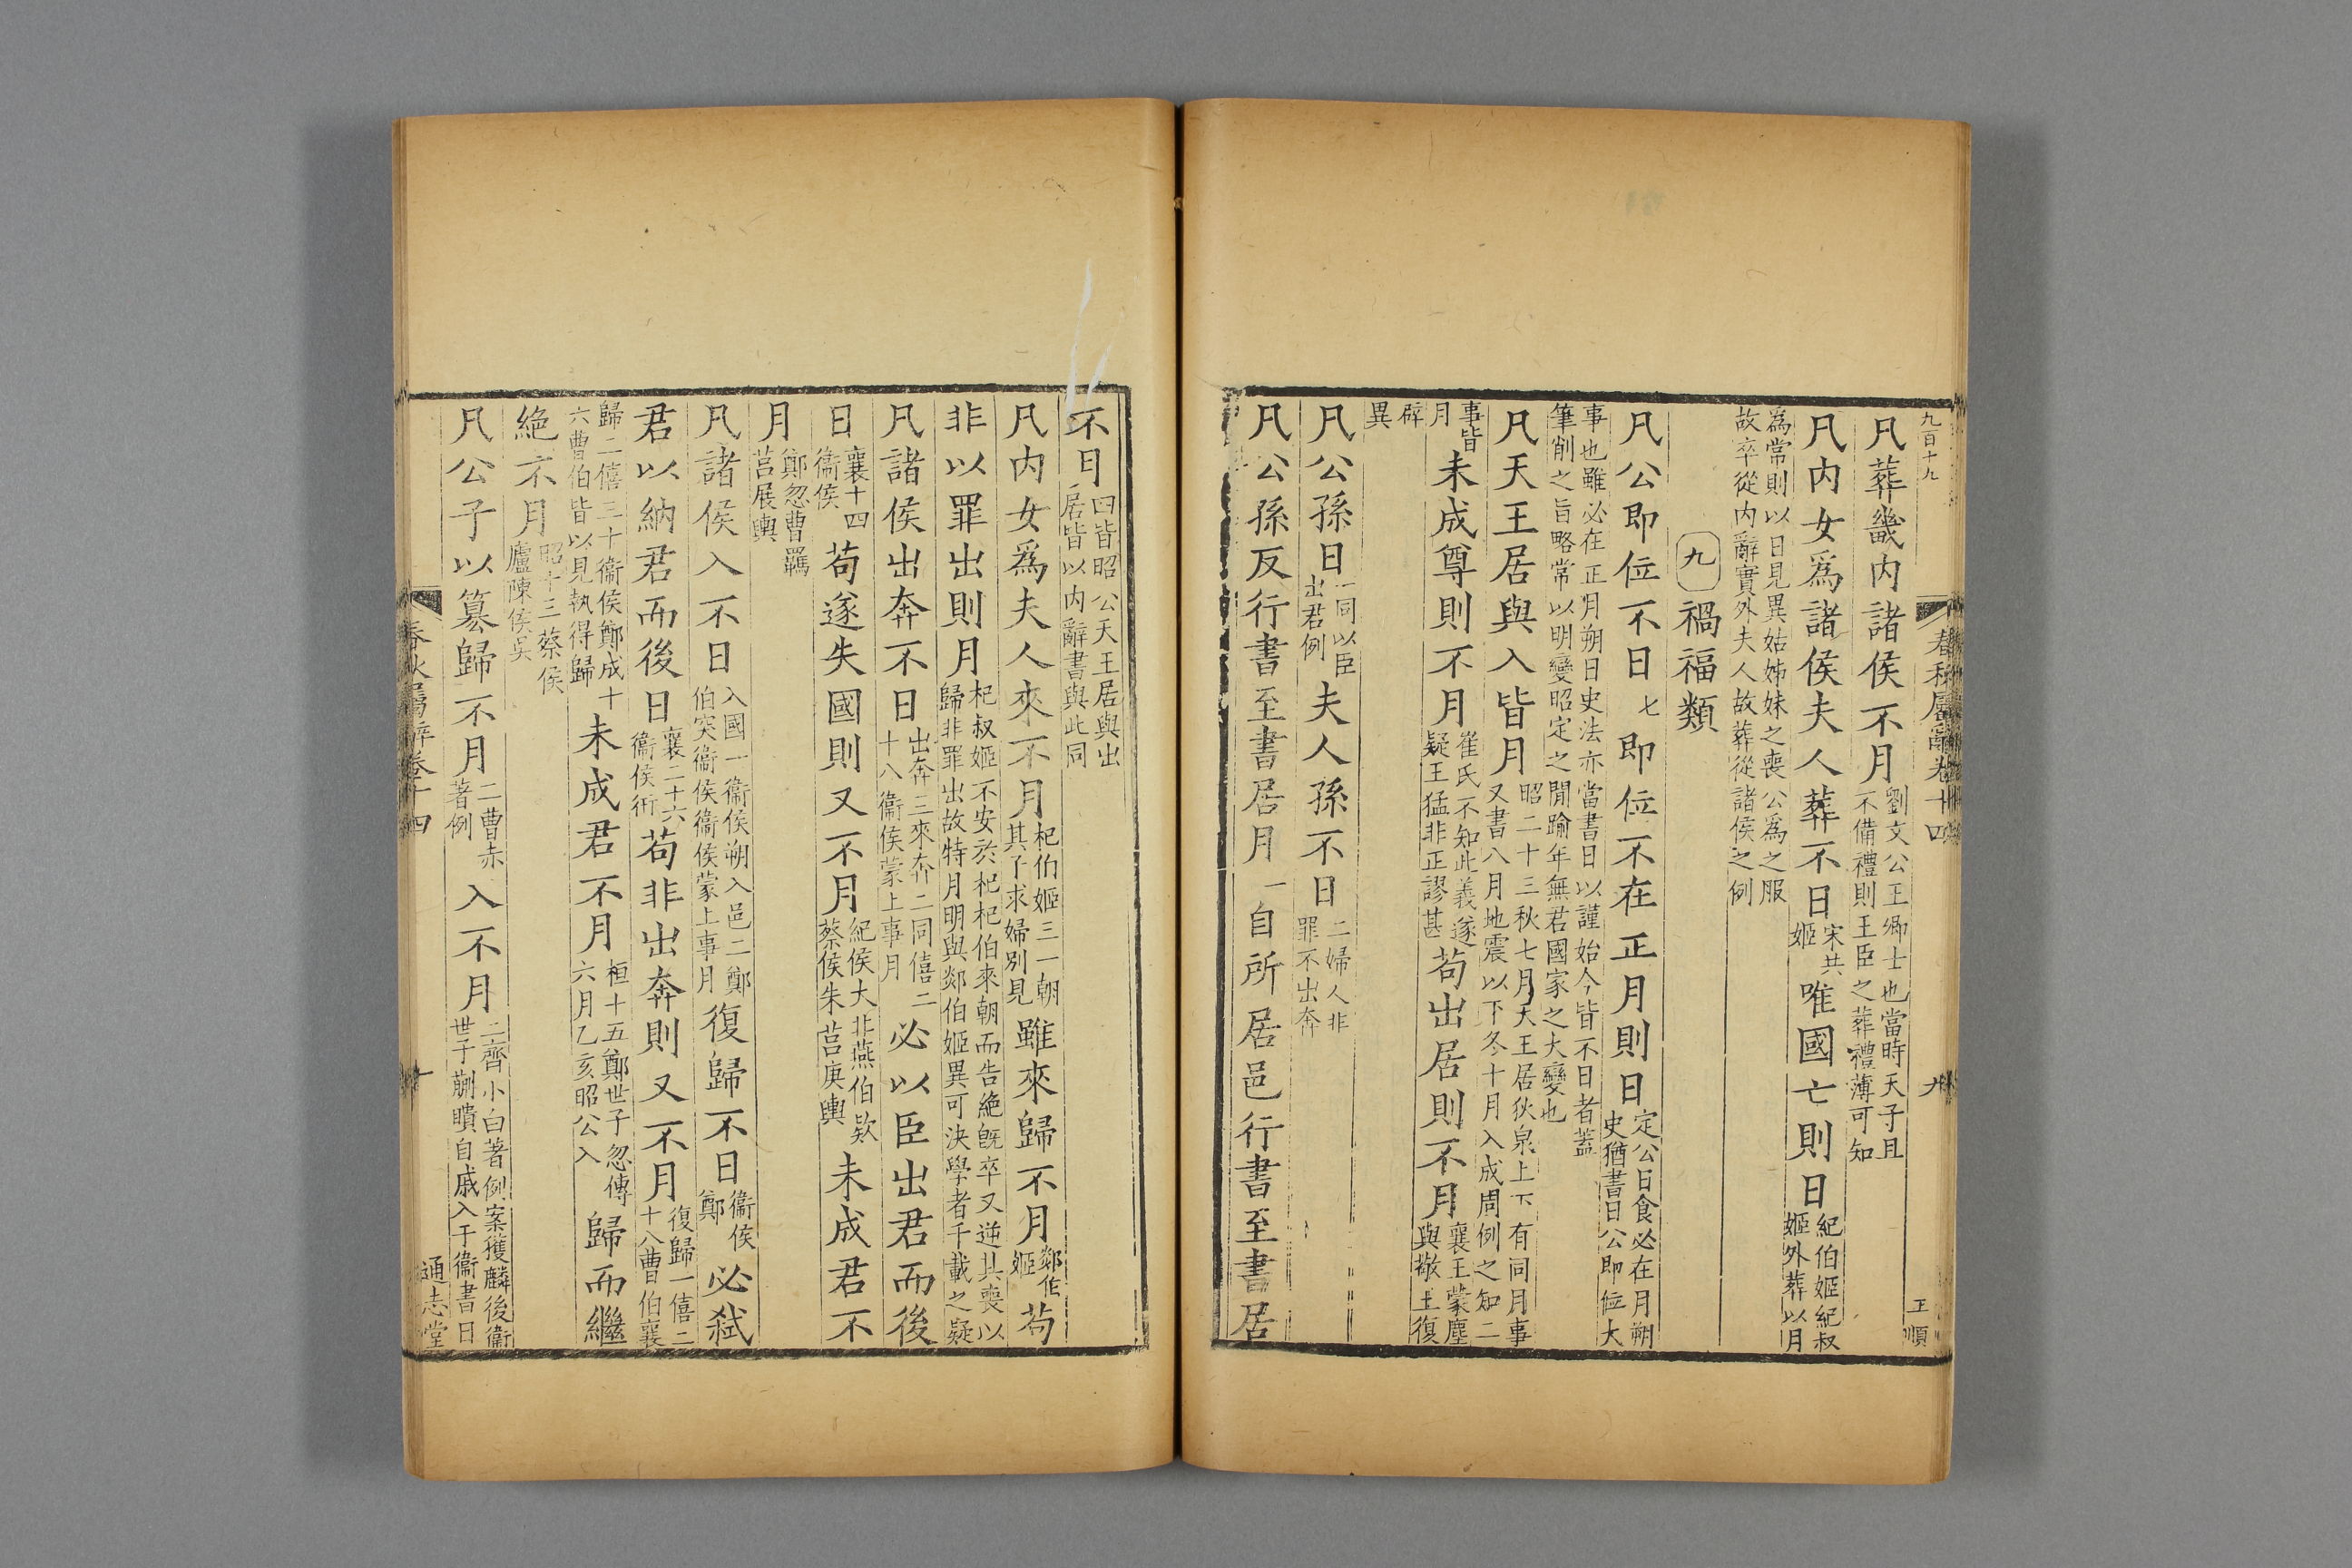 九百十九
春秋屬辭卷十四
九
王順
凡葬畿內諸侯不月劉文公王卿士也當時天子且不備禮則王臣之葬禮薄可知
凡內女爲諸侯夫人葬不日宋共姬唯國亡則日紀伯姬紀叔姬外葬以月
爲常則以日見異姑姊妹之喪公爲之服故卒從內辭實外夫人故葬從諸侯之例
九禍福類
凡公即位不日七即位不在正月則日定公日食必在月朔史猶書日公即位大
事也雖必在正月朔日史法亦當書日以謹始今皆不日者蓋筆削之旨略常以明變昭定之閒踰年無君國家之大變也
凡天王居與入皆月昭二十三秋七月天王居狄泉上下有同月事又書八月地震以下冬十月入成周例之知二
事皆月未成尊則不月崔氏不知此義遂疑王猛非正謬甚茍出居則不月襄王蒙塵與敬王復
辟異
凡公孫日一同以臣出君例夫人孫不日二婦人非罪不出奔
凡公孫反行書至書居月一自所居邑行書至書居
不日四皆昭公天王居與出居皆以內辭書與此同
凡內女爲夫人來不月杞伯姬三一朝其子求婦別見雖來歸不月郯伯姬茍
非以罪出則月杞叔姬不安於杞杞伯來朝而告絶旣卒又逆其喪以歸非罪出故特月明與郯伯姬異可決學者千載之疑
凡諸侯出奔不日出奔三來奔二同僖二十八衞侯蒙上事月必以臣出君而後
日襄十四衞侯茍遂失國則又不月紀侯大北燕伯款蔡侯朱莒庚輿未成君不
月鄭忽曹羈莒展輿
凡諸侯入不日入國一衞侯朔入邑二鄭伯突衞侯衞侯蒙上事月復歸不日衞侯鄭必弑
君以納君而後日襄二十六衞侯衎茍非出奔則又不月復歸一僖二十八曹伯襄
歸二僖三十衞侯鄭成十六曹伯皆以見執得歸未成君不月桓十五鄭世子忽傳六月乙亥昭公入歸而繼
絶不月昭十三蔡侯廬陳侯吳
凡公子以簒歸不月二曹赤著例入不月二齊小白著例案獲麟後衞世子蒯聵自戚入于衞書日
春秋屬辭卷十四
十
通志堂